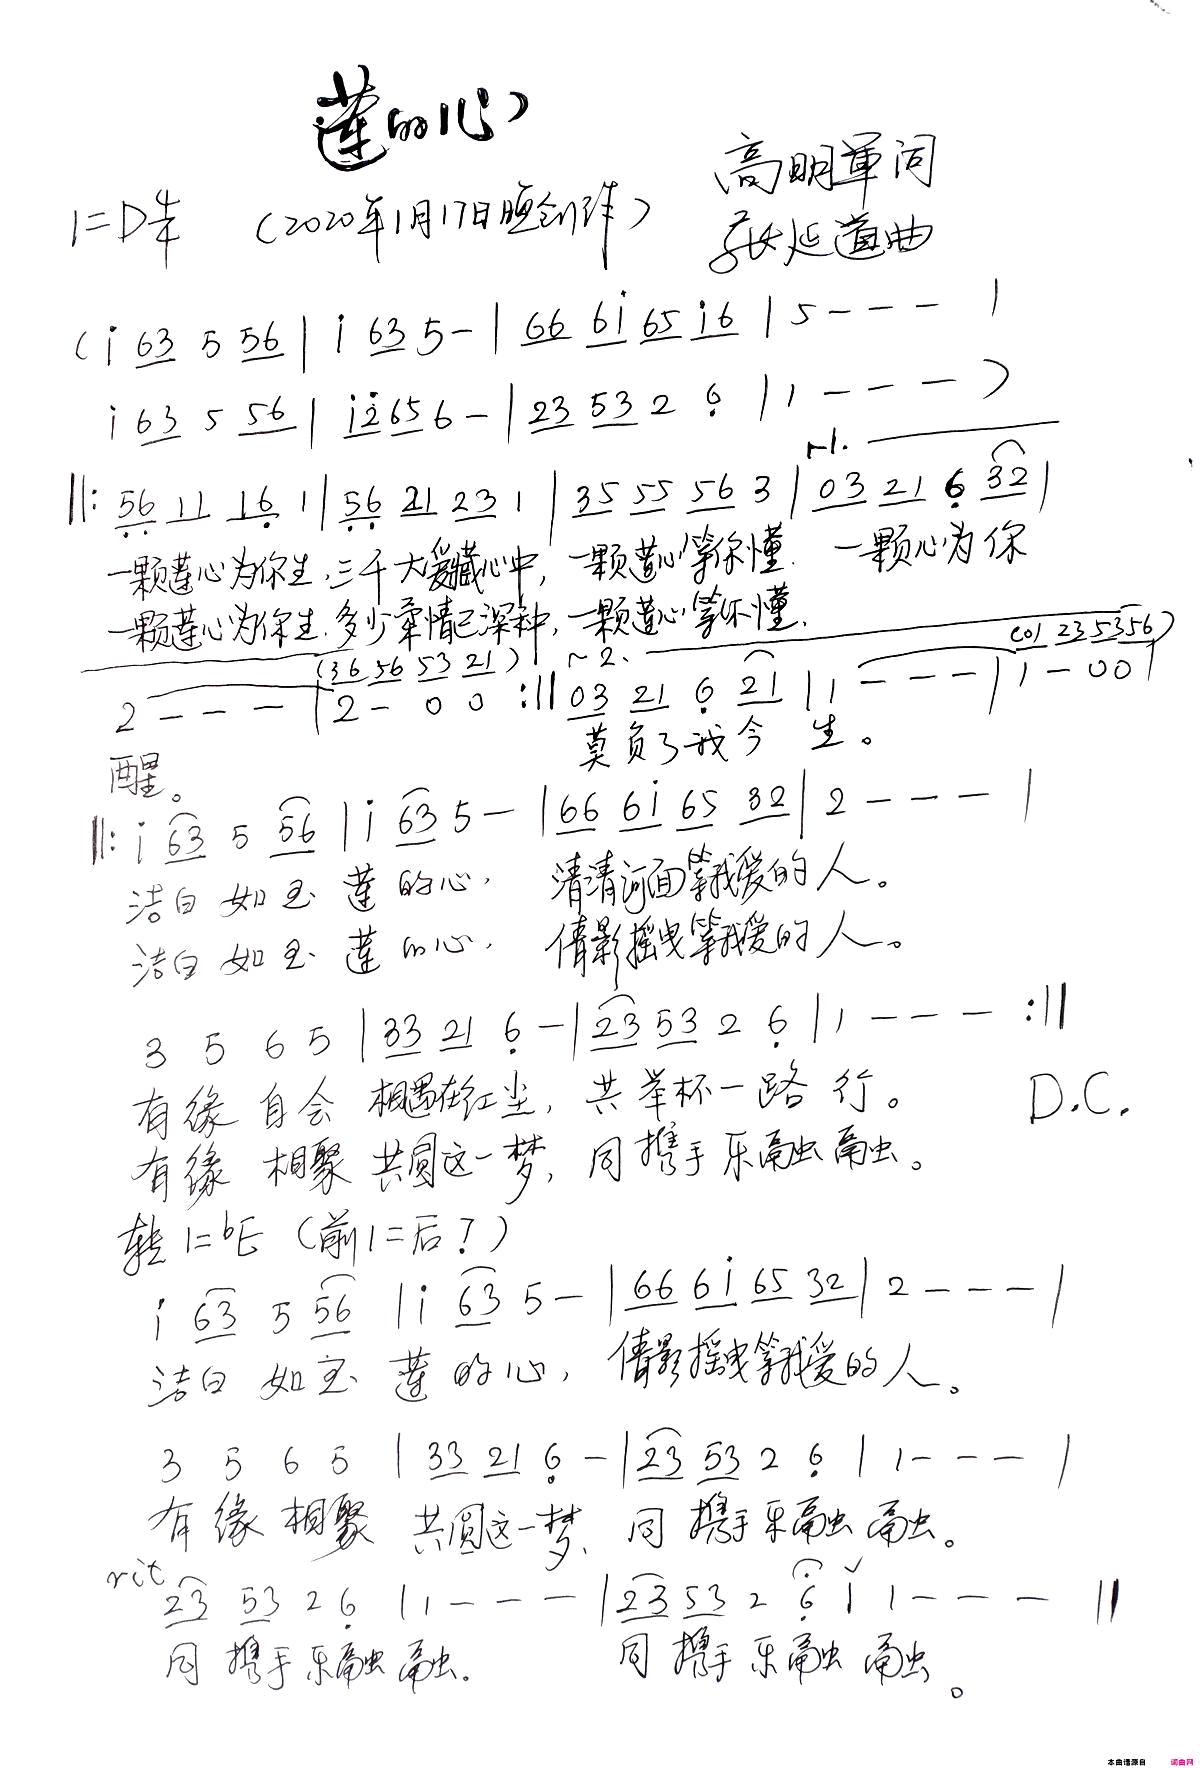 莲的心
高明军词
1=D 4/4 (2020年1月17日晚创作)
张延道曲
(i 63 5 56 | i 63 5 - | 66 6i 65 i6 | 5 - - - |
i 63 5 56 | i2 65 6 - | 23 53 2 6 | 1 - - - )
1.
||: 56 11 16 1 | 56 21 23 1 | 35 55 56 3 | 03 21 6 32 |
一颗莲心为你生,三千大爱藏心中,一颗莲心等你懂. 一颗心为你
一颗莲心为你生.多少柔情已深种,一颗莲心等你懂.
(36 56 53 21) 2. (01 235356)
2 - - - | 2 - 0 0 :|| 03 21 6 21 | 1 - - - | 1 - 00 |
醒。 莫负了我今 生。
||: i 63 5 56 | i 63 5 - | 66 6i 65 32 | 2 - - - |
洁白如玉莲的心, 清清河面等我爱的人。
洁白如玉莲的心, 倩影摇曳等我爱的人。
3 5 6 5 | 33 21 6 - | 23 53 2 6 | 1 - - - :||
有缘自会相遇在红尘,共举杯一路行。 D.C.
有缘相聚共圆这一梦,同携手乐融融。
转1=bE (前1=后7)
i 63 5 56 | i 63 5 - | 66 6i 65 32 | 2 - - - |
洁白如玉莲的心, 倩影摇曳等我爱的人。
3 5 6 5 | 33 21 6 - | 23 53 2 6 | 1 - - - |
有缘相聚共圆这一梦, 同携手乐融融。
rit
23 53 2 6 | 1 - - - | 23 53 2 6 i 1 - - - ||
同携手乐融融. 同携手乐融融。
本曲谱源自 词曲网